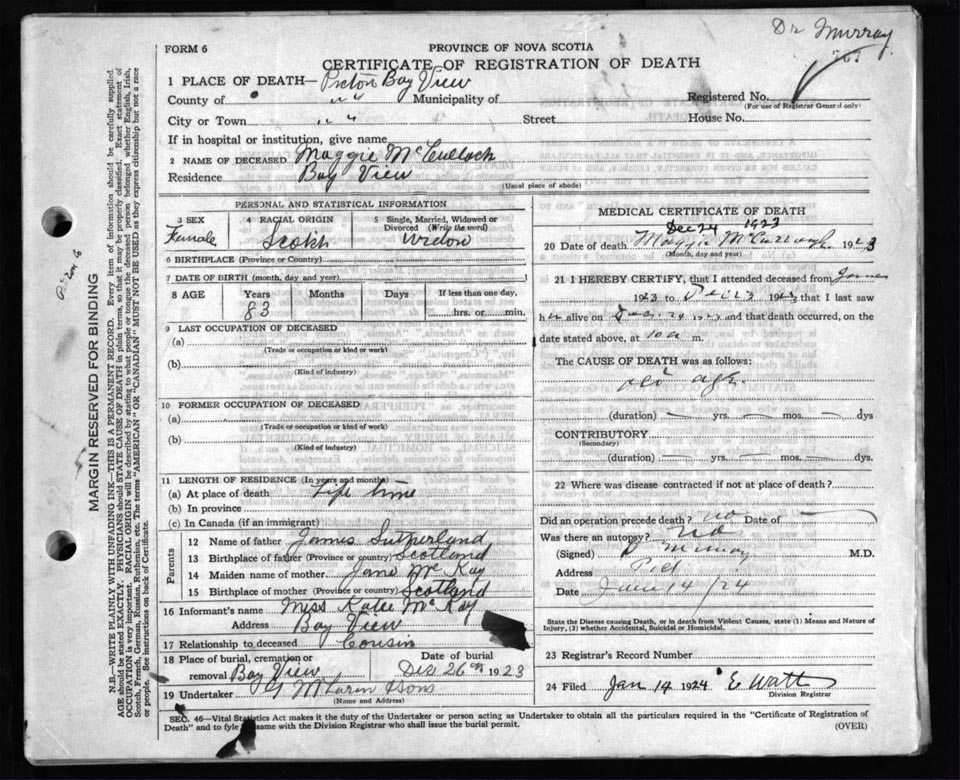 Dr Murray
FORM 6
PROVINCE OF NOVA SCOTIA
CERTIFICATE OF REGISTRATION OF DEATH
1 PLACE OF DEATH— Pictou Bay View
County of " " Municipality of
Registered No.
(For use of Registrar General only)
City or Town " " Street House No.
If in hospital or institution, give name
2 NAME OF DECEASED Maggie McCulloch
Residence Bay View
(Usual place of abode)
PERSONAL AND STATISTICAL INFORMATION
3 SEX Female
4 RACIAL ORIGIN Scotch
5 Single, Married, Widowed or Divorced (Write the word) Widow
6 BIRTHPLACE (Province or Country)
7 DATE OF BIRTH (month, day and year)
8 AGE Years 83 Months Days If less than one day, hrs. or min.
9 LAST OCCUPATION OF DECEASED
(a)
(Trade or occupation or kind or work)
(b)
(Kind of industry)
10 FORMER OCCUPATION OF DECEASED
(a)
(Trade or occupation or kind or work)
(b)
(Kind of industry)
11 LENGTH OF RESIDENCE (In years and months)
(a) At place of death Life time
(b) In province
(c) In Canada (if an immigrant)
Parents
12 Name of father James Sutherland
13 Birthplace of father (Province or country) Scotland
14 Maiden name of mother Jane McKay
15 Birthplace of mother (Province or country) Scotland
16 Informant's name Miss Katie McKay
Address Bay View
17 Relationship to deceased Cousin
18 Place of burial, cremation or removal Bay View
Date of burial Dec 26th 1923
19 Undertaker & Sons
(Name and Address)
MEDICAL CERTIFICATE OF DEATH
Dec 24 1923
20 Date of death Maggie McCullough 1923
(Month, day and year)
21 I HEREBY CERTIFY, that I attended deceased from
1923 to Dec 23 1923 that I last saw
her alive on Dec. 24 1923 and that death occurred, on
the date stated above, at 10 a m.
The CAUSE OF DEATH was as follows:
old age.
(duration) — yrs. — mos. — dys
CONTRIBUTORY
(Secondary)
(duration) — yrs. — mos. — dys.
22 Where was disease contracted if not at place of death?
Did an operation precede death? no Date of —
Was there an autopsy? no
(Signed) D Murray M.D.
Address Pict
Date Jan 14/24
State the Disease causing Death, or in death from Violent Causes, state (1) Means and Nature of
Injury, (2) whether Accidental, Suicidal or Homicidal.
23 Registrar's Record Number
24 Filed Jan 14 1924 E Watt
Division Registrar
SEC. 46—Vital Statistics Act makes it the duty of the Undertaker or person acting as Undertaker to obtain all the particulars required in the "Certificate of Registration of
Death" and to fyle same with the Division Registrar who shall issue the burial permit.
(OVER)
MARGIN RESERVED FOR BINDING
N.B.—WRITE PLAINLY WITH UNFADING INK—THIS IS A PERMANENT RECORD. Every item of information should be carefully supplied.
AGE should be stated EXACTLY. PHYSICIANS should STATE CAUSE OF DEATH in plain terms, so that it may be properly classified. Exact statement of
OCCUPATION is very important. RACIAL ORIGIN will be described by stating to what people or tongue the deceased person belonged whether English, Irish,
Scotch, French, German, Russian, Ruthenian, etc. The terms "AMERICAN" OR "CANADIAN" MUST NOT BE USED as they express citizenship but not a race
or people. See instructions on back of Certificate.